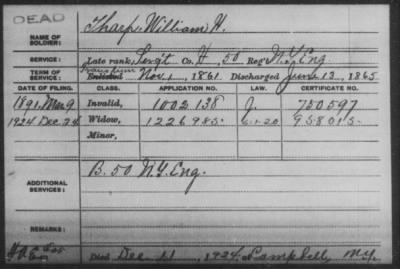 DEAD
NAME OF SOLDIER: Tharp, William H.
SERVICE: Late rank, Serg't Co. H, 50 Reg't N.Y. Eng
TERM OF SERVICE: Enlisted Nov. 1, 1861. Discharged June 13, 1865
DATE OF FILING. CLASS. APPLICATION NO. LAW. CERTIFICATE NO.
1891. May 9 Invalid, 1002138 J. 750597
1924 Dec 24 Widow, 1226985. 5-1-20 958015.
Minor,
ADDITIONAL SERVICES: B. 50 N.Y. Eng.
REMARKS:
Died Dec 11, 1924, Campbell, N.Y.